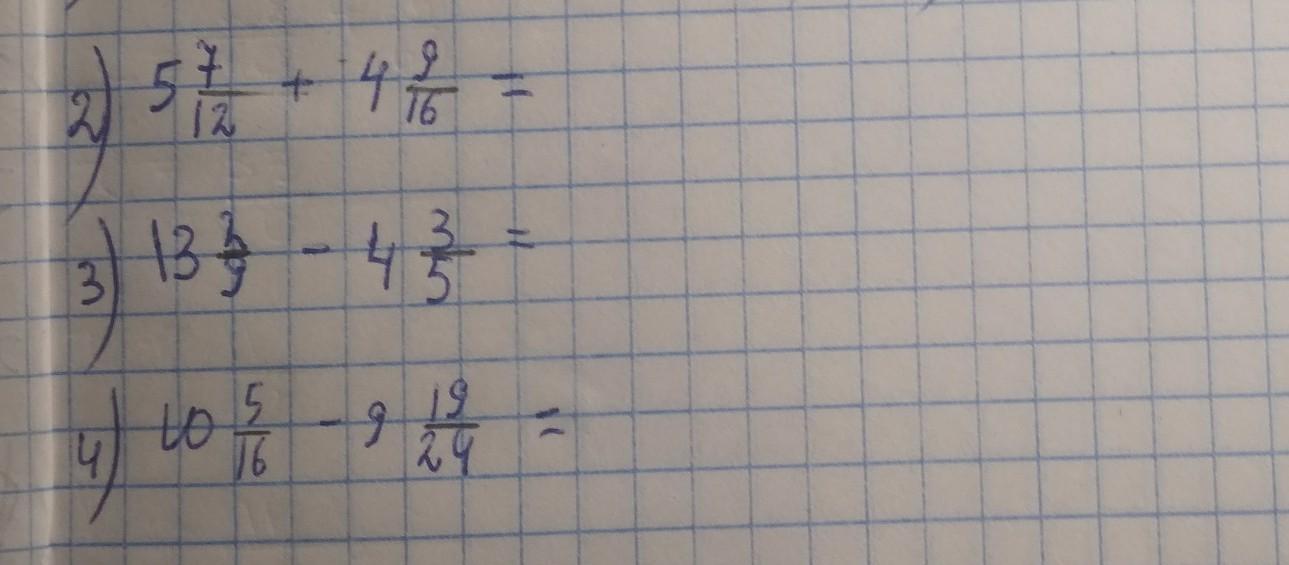 2) 5 7/12 + 4 9/16 =
3) 13 2/9 - 4 3/5 =
4) 10 5/16 - 9 19/24 =